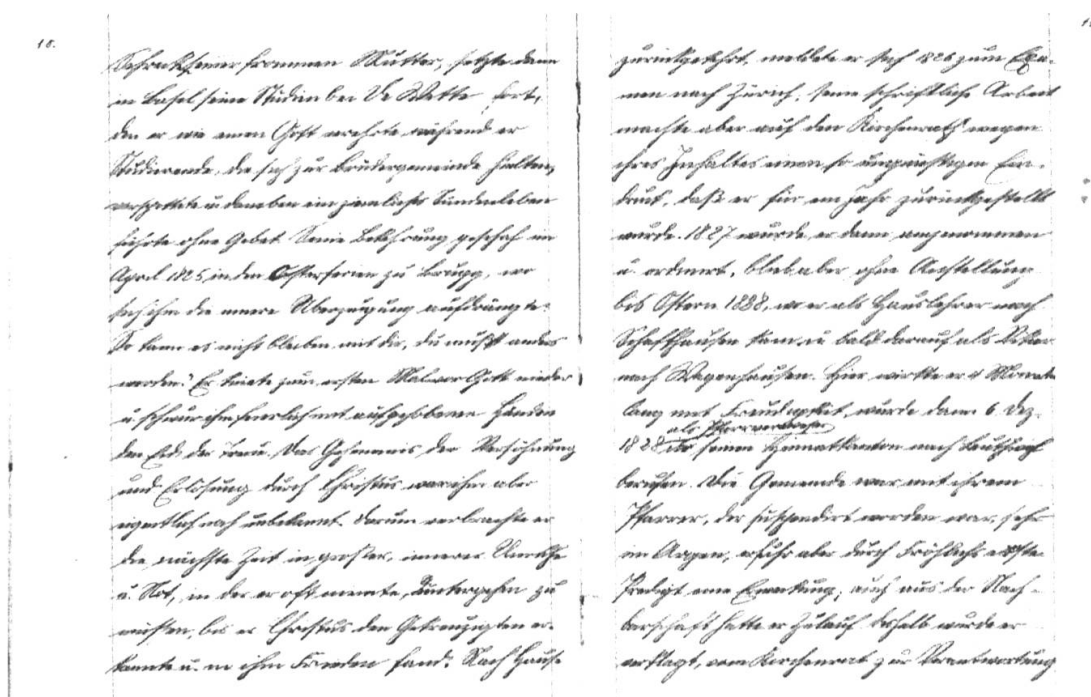 18.
Schreck seiner frommen Mutter, setzte dann
in Basel seine Studien bei De Wette fort,
den er wie einen Gott verehrte während er
Studierende, die sich zur Brüdergemeinde hielten,
verspottete u. daneben ein ziemliches Sündenleben
führte ohne Gebet. Seine Bekehrung geschah im
April 1825 in den Osterferien zu Brugg, wo
sich ihm die innere Überzeugung aufdrängte:
So kann es nicht bleiben mit dir, du mußt anders
werden." Er kniete zum ersten Mal vor Gott nieder
u. schwur ihm feierlich mit aufgehobenen Händen
den Eid der Treue. Das Geheimnis der Versöhnung
und Erlösung durch Christus war ihm aber
eigentlich noch unbekannt. Darum verbrachte er
die nächste Zeit in großer, innerer Unruhe
u. Not, in der er oft meinte, untergehen zu
müssen, bis er Christus den Gekreuzigten er-
kannte u. in ihm Frieden fand. Nach Hause
zurückgekehrt, meldete er sich 1826 zum Exa-
men nach Zürich, seine schriftliche Arbeit
machte aber auf den Kirchenrath wegen
ihres Inhaltes einen so ungünstigen Ein-
druck, daß er für ein Jahr zurückgestellt
wurde. 1827 wurde er dann angenommen
u. ordiniert, blieb aber ohne Anstellung
bis Ostern 1828, wo er als Hauslehrer nach
Schaffhausen kam, u. bald darauf als Vikar
nach Wagenhausen. Hier wirkte er 4 Monate
lang mit Freudigkeit, wurde dann 6. Dez.
als Pfarrverweser
1828 in seinen Heimatkanton nach
berufen. Die Gemeinde war mit ihrem
Pfarrer, der suspendirt worden war, sehr
im Argen, erfuhr aber durch Fröhlichs erste
Predigt eine Erweckung, auch aus der Nach-
barschaft hatte er Zulauf. Deshalb wurde er
verklagt, vom Kirchenrat zur Verantwortung